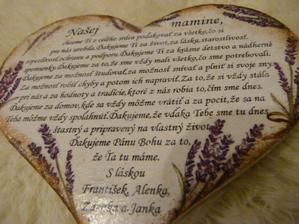 Našej mamine,
chceme Ti z celého srdca poďakovať za všetko, čo si
pre nás urobila. Ďakujeme Ti za život, za lásku, starostlivosť,
trpezlivosť, ochranu a podporu. Ďakujeme Ti za krásne detstvo a nádherné
spomienky. Ďakujeme za to, že sme vždy mali všetko, čo sme potrebovali.
Ďakujeme za možnosť študovať, za možnosť snívať a plniť si svoje sny
Za možnosť robiť chyby a potom ich napraviť. Za to, že si vždy stála
pri nás a za hodnoty a tradície, ktoré z nás robia to, čím sme dnes.
Ďakujeme za domov, kde sa vždy môžme vrátiť a za pocit, že sa na
Teba môžme vždy spoľahnúť. Ďakujeme, že vďaka Tebe sme tu dnes
šťastný a pripravený na vlastný život.
Ďakujeme Pánu Bohu za to,
že Ťa tu máme.
S láskou
František, Alenka,
a Janka